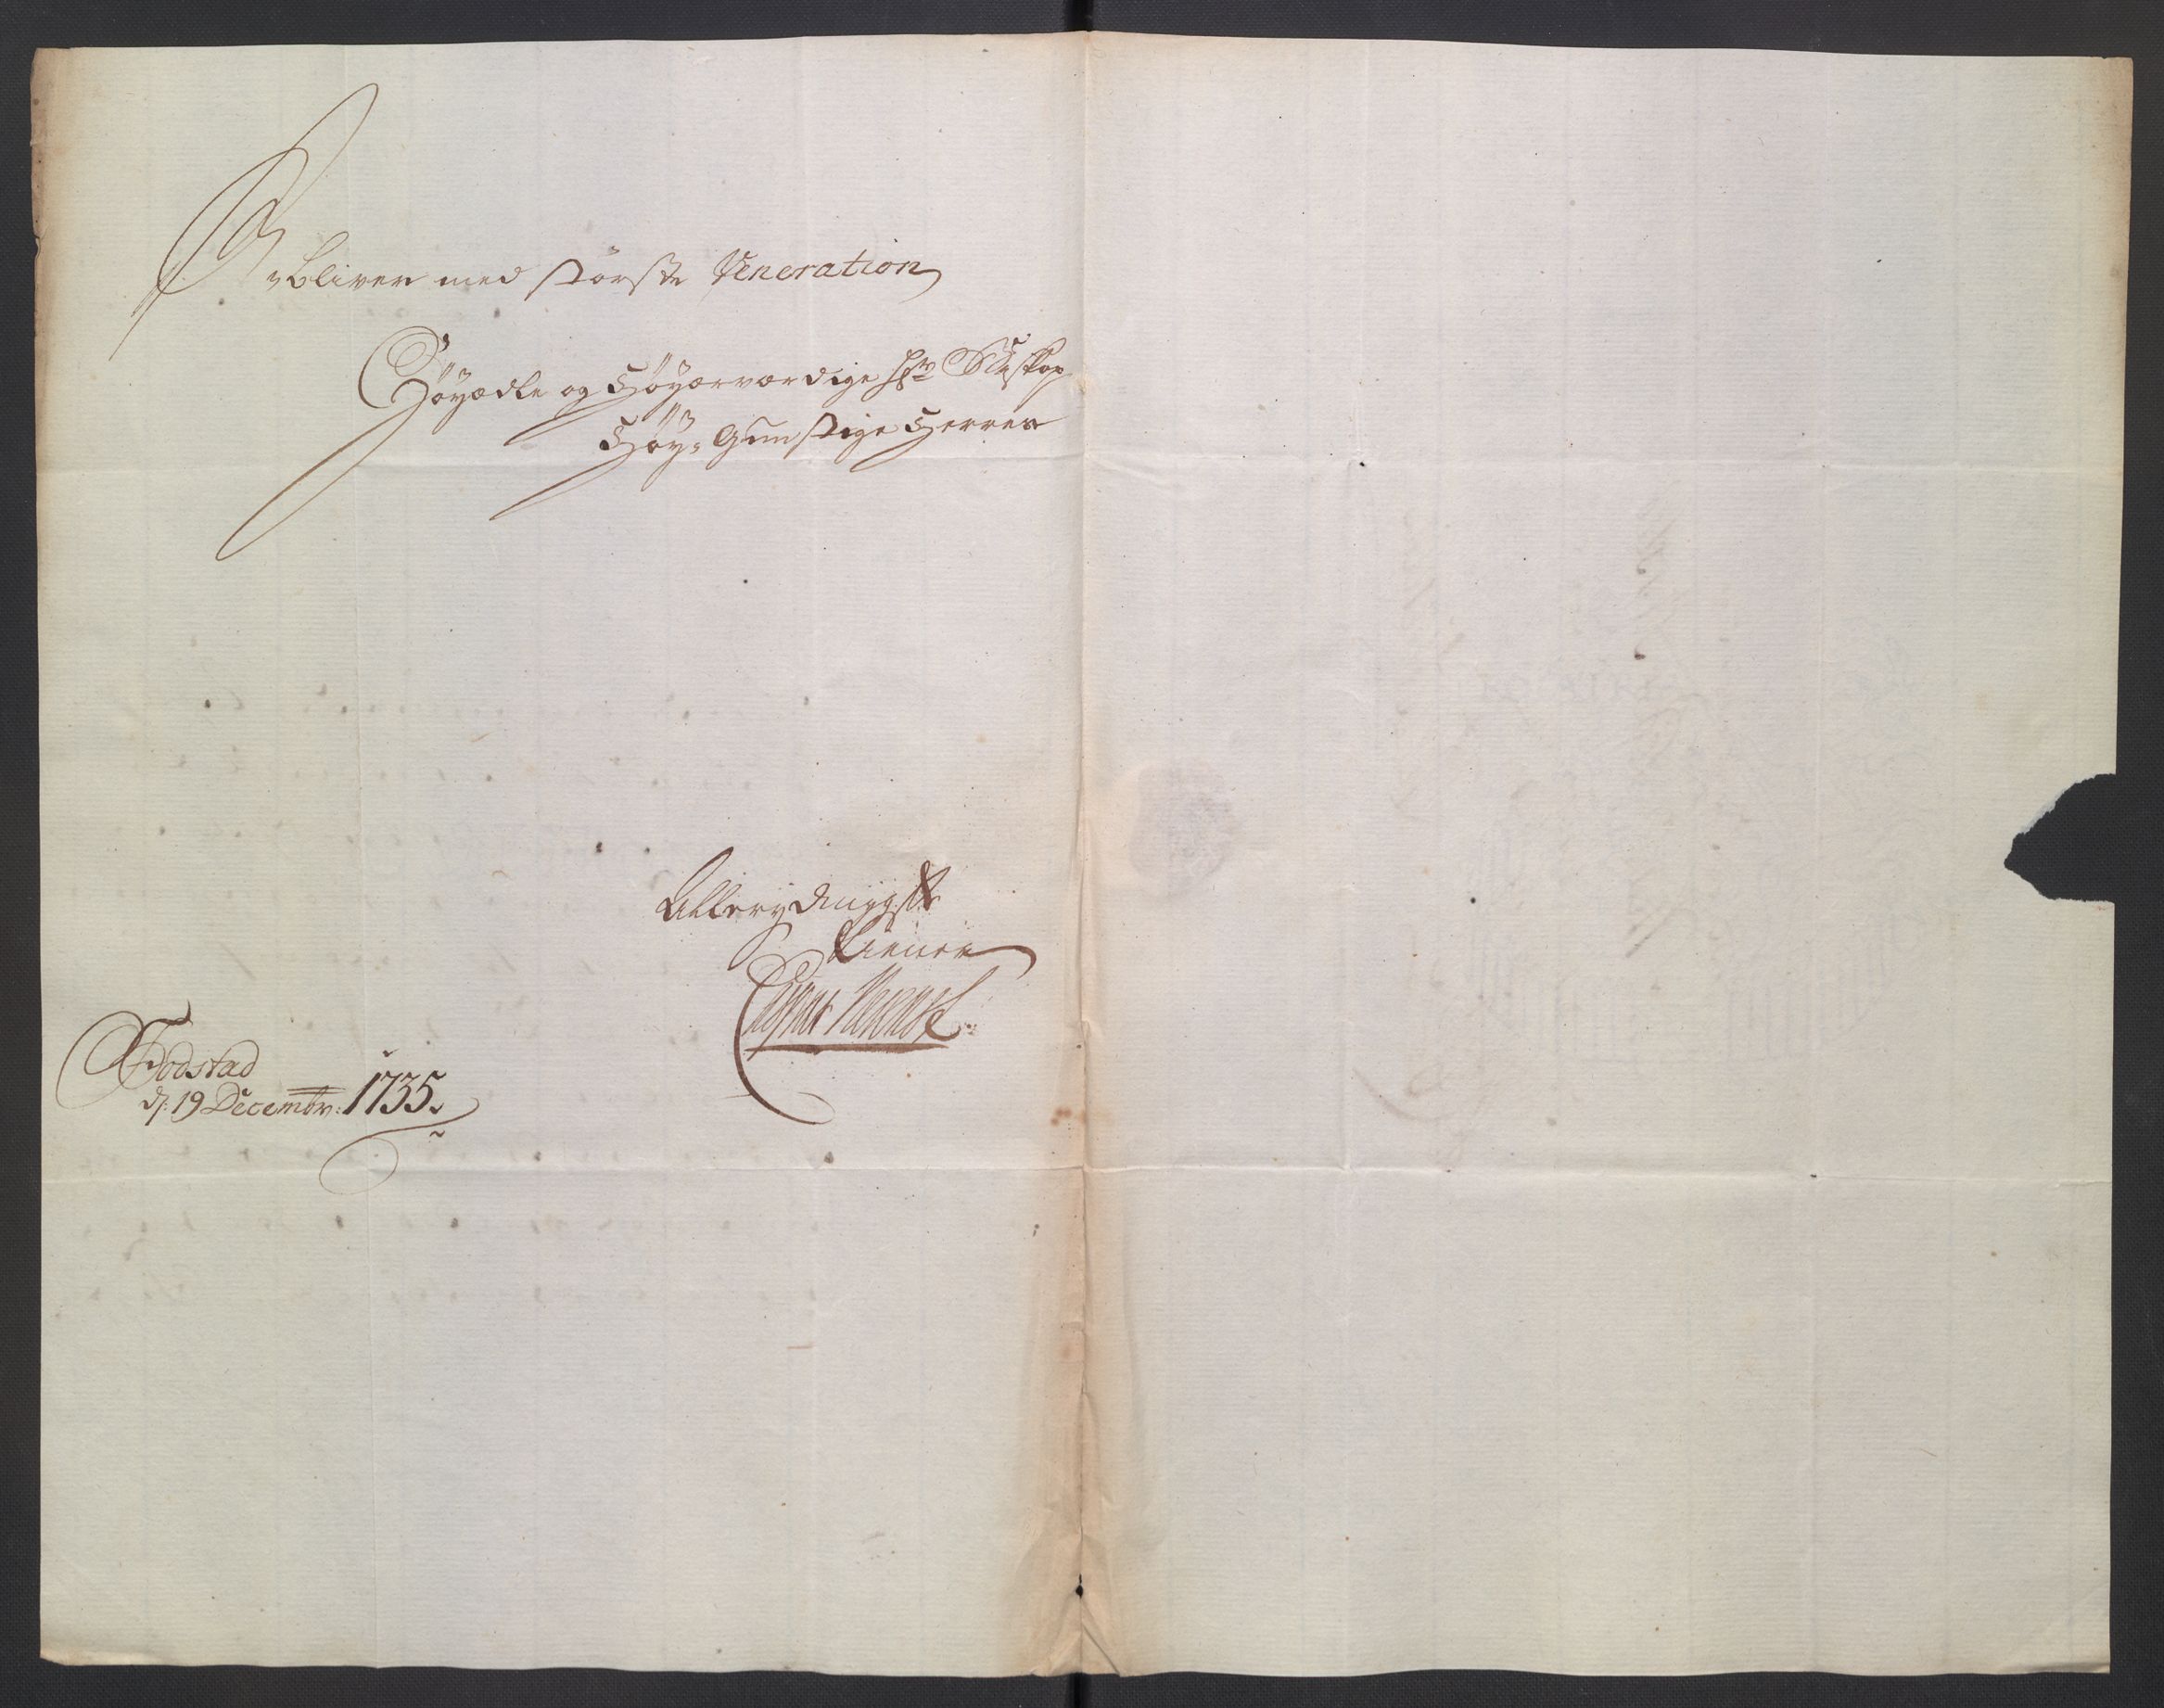 bliver med største Veneration
Höyædle og Höyærværdige Hr. Biskop
Höy-Gunstige Herres
Allerydmygste
tiener
Fodstad
d. 19 Decembr: 1735.